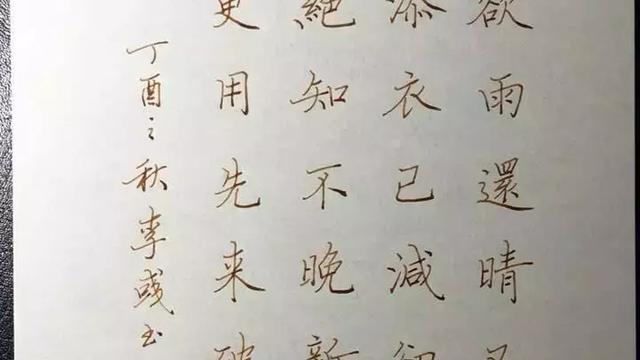 欲雨還晴
添衣已減
絕知不晚新
更用先来破
丁酉之秋李彧书